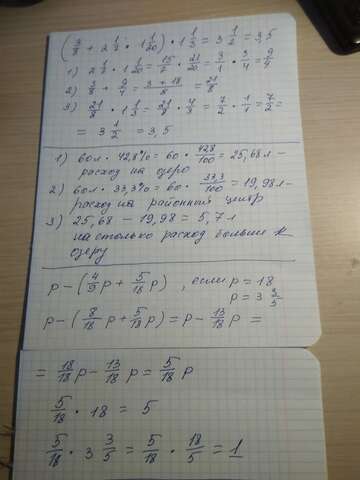 (3/8 + 2 1/7 · 1 1/20) · 1 1/3 = 3 1/2 = 3,5
1) 2 1/7 · 1 1/20 = 15/7 · 21/20 = 3/1 · 3/4 = 9/4
2) 3/8 + 9/4 = 3 + 18/8 = 21/8
3) 21/8 · 1 1/3 = 21/8 · 4/3 = 7/2 · 1/1 = 7/2 =
= 3 1/2 = 3,5
1) 60л · 42,8% = 60 · 42,8/100 = 25,68 л –
расход на озеро
2) 60л · 33,3% = 60 · 33,3/100 = 19,98 л –
расход на районный центр
3) 25,68 – 19,98 = 5,7 л
на столько расход больше к
озеру
p – (4/9 p + 5/18 p) , если p = 18
p = 3 3/5
p – (8/18 p + 5/18 p) = p – 13/18 p =
= 18/18 p – 13/18 p = 5/18 p
5/18 · 18 = 5
5/18 · 3 3/5 = 5/18 · 18/5 = 1